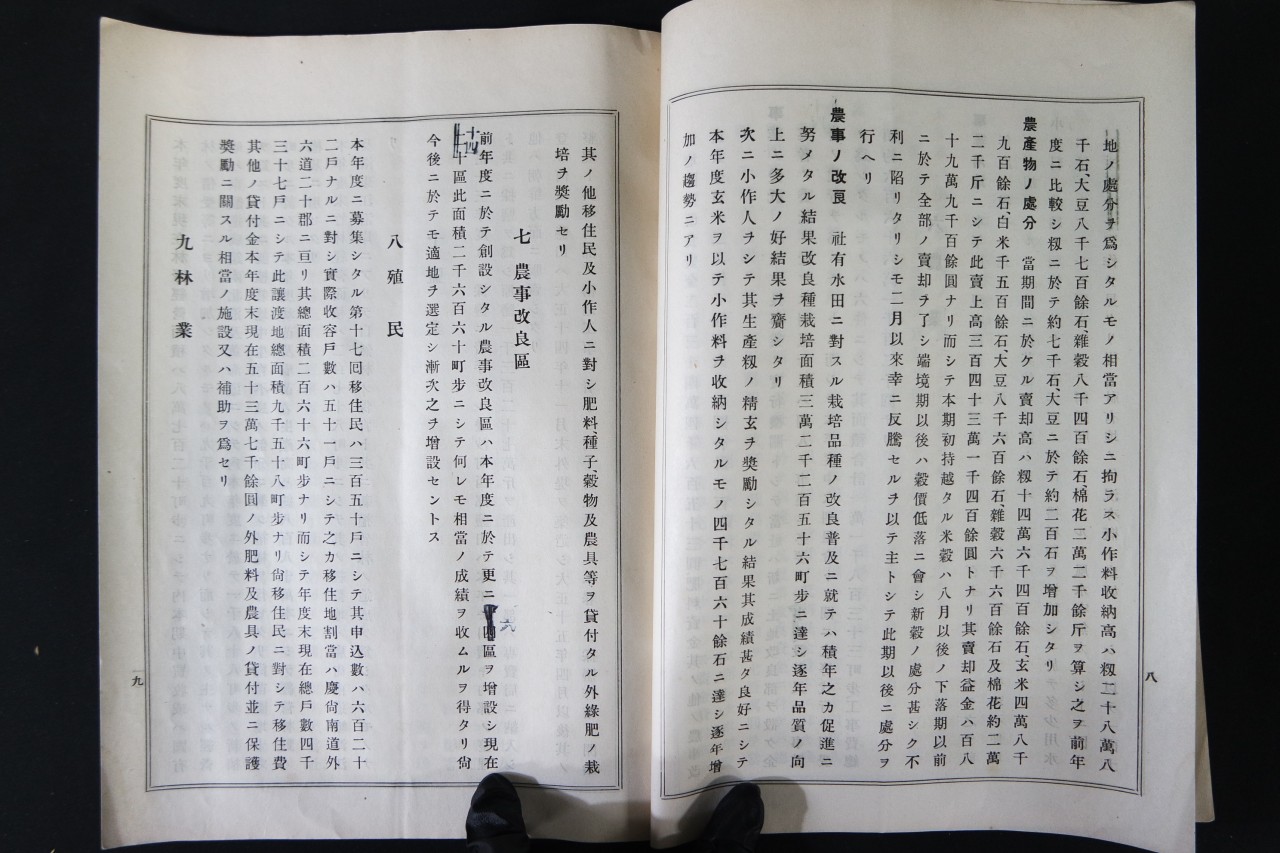 地ノ處分ヲ爲シタルモノ相當アリシニ拘ラス小作料收納高ハ籾二十八萬八
千石、大豆八千七百餘石、雜穀八千四百餘石、棉花二萬二千餘斤ヲ算シ之ヲ前年
度ニ比較シ籾ニ於テ約七千石、大豆ニ於テ約二百石ヲ增加シタリ
農產物ノ處分 當期間ニ於ケル賣却高ハ籾十四萬六千四百餘石、玄米四萬八千
九百餘石、白米千五百餘石大豆八千六百餘石、雜穀六千六百餘石及棉花約二萬
二千斤ニシテ此賣上高三百四十三萬一千四百餘圓トナリ其賣却益金ハ百八
十九萬九千百餘圓ナリ而シテ本期初持越タル米穀ハ八月以後ノ下落期以前
ニ於テ全部ノ賣却ヲ了シ端境期以後ハ穀價低落ニ會シ新穀ノ處分甚シク不
利ニ陷リタリシモ二月以來幸ニ反騰セルヲ以テ主トシテ此期以後ニ處分ヲ
行ヘリ
農事ノ改良 社有水田ニ對スル栽培品種ノ改良普及ニ就テハ積年之カ促進ニ
努メタル結果改良種栽培面積三萬二千二百五十六町步ニ達シ逐年品質ノ向
上ニ多大ノ好結果ヲ齎シタリ
次ニ小作人ヲシテ其生產籾ノ精玄ヲ奬勵シタル結果其成績甚タ良好ニシテ
本年度玄米ヲ以テ小作料ヲ收納シタルモノ四千七百六十餘石ニ達シ逐年增
加ノ趨勢ニアリ
八
其ノ他移住民及小作人ニ對シ肥料、種子、穀物及農具等ヲ貸付タル外綠肥ノ栽
培ヲ奬勵セリ
七 農事改良區
前年度ニ於テ創設シタル農事改良區ハ本年度ニ於テ更ニ六區ヲ增設シ現在
十四區此面積二千六百六十町步ニシテ何レモ相當ノ成績ヲ收ムルヲ得タリ尙
今後ニ於テモ適地ヲ選定シ漸次之ヲ增設セントス
八 殖 民
本年度ニ募集シタル第十七回移住民ハ三百五十戶ニシテ其申込數ハ六百二十
二戶ナルニ對シ實際收容戶數ハ五十一戶ニシテ之カ移住地割當ハ慶尙南道外
六道二十郡ニ亘リ其總面積二百六十六町步ナリ而シテ年度末現在總戶數四千
三十七戶ニシテ此讓渡地總面積九千五十八町步ナリ尙移住民ニ對シテ移住費
其他ノ貸付金本年度末現在五十三萬七千餘圓ノ外肥料及農具ノ貸付並ニ保護
奬勵ニ關スル相當ノ施設又ハ補助ヲ爲セリ
九 林 業
九